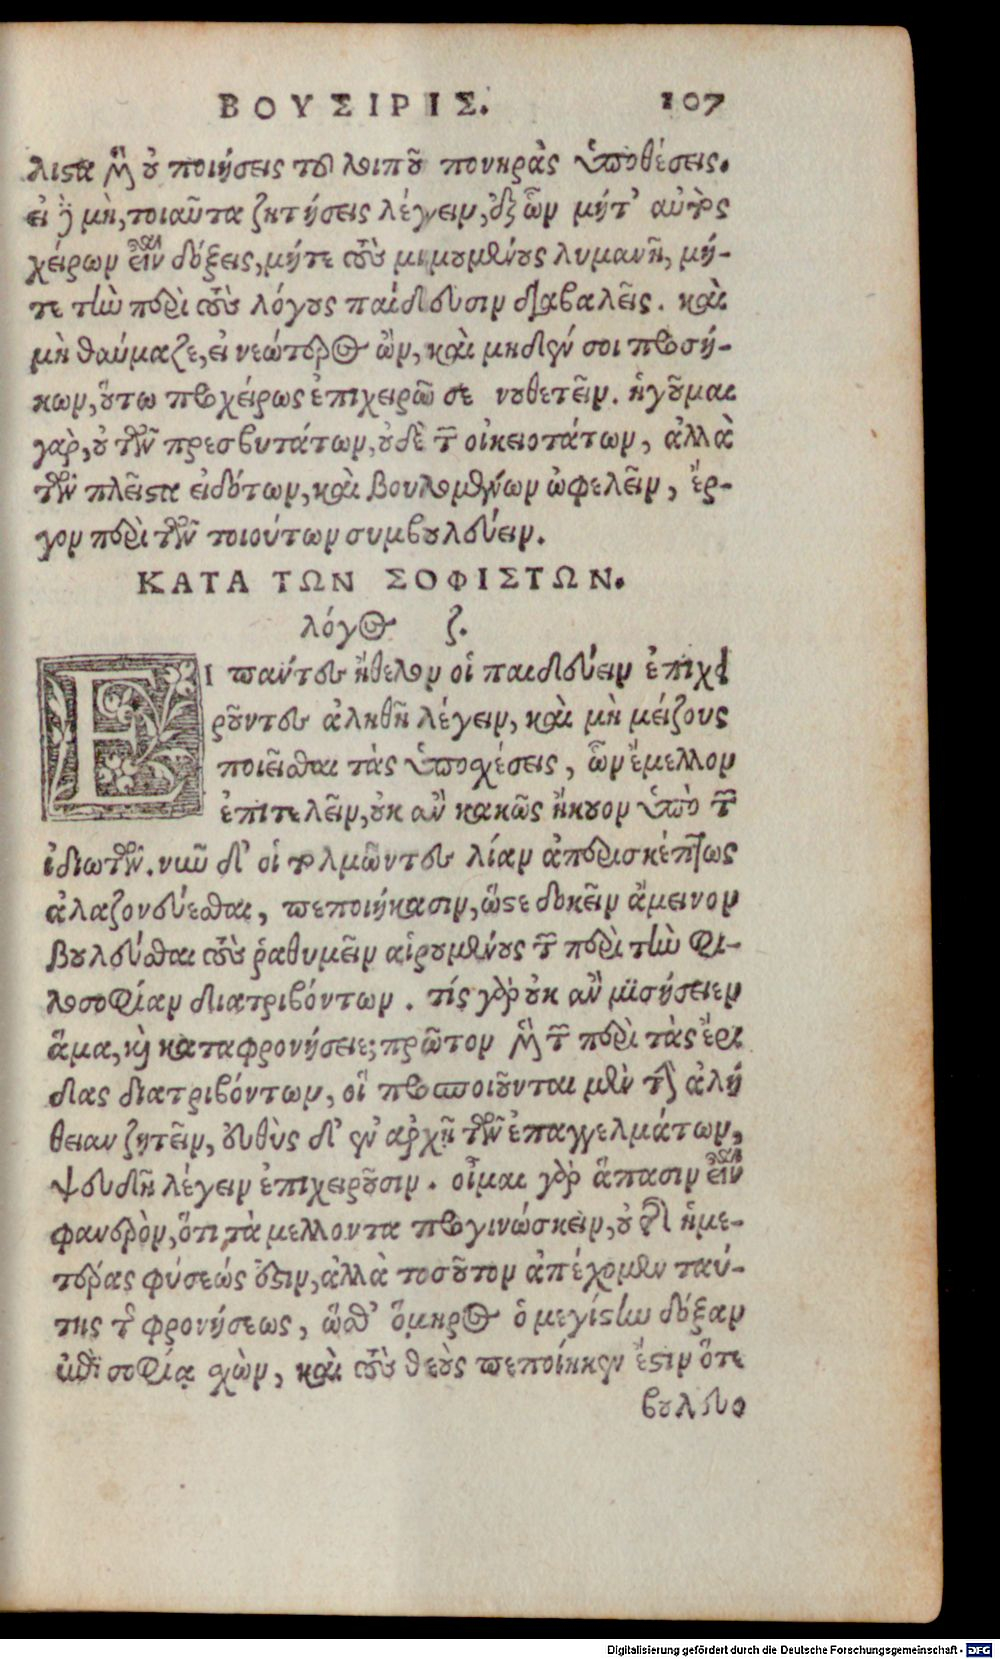 ΒΟΥΣΙΡΙΣ. 107
λιστα μὲν οὐ ποιήσεις τοῦ λοιποῦ πονηρὰς ὑποθέσεις.
εἰ δὲ μὴ, τοιαῦτα ζητήσεις λέγειν, ἐξ ὧν μήτ' αὐτὸς
χείρων εἶναι δόξεις, μήτε τοὺς μιμουμένους λυμανῇ, μή-
τε τὴν περὶ τοὺς λόγους παίδευσιν διαβαλεῖς. καὶ
μὴ θαύμαζε, εἰ νεώτερος ὢν, καὶ μηδέν σοι προσή-
κων, οὕτω προχείρως ἐπιχειρῶ σε νουθετεῖν. ἡγοῦμαι
γὰρ, οὐ τῶν πρεσβυτάτων, οὐδὲ τῶν οἰκειοτάτων, ἀλλὰ
τῶν πλεῖστα εἰδότων, καὶ βουλομένων ὠφελεῖν, ἔρ-
γον περὶ τῶν τοιούτων συμβουλεύειν.
ΚΑΤΑ ΤΩΝ ΣΟΦΙΣΤΩΝ.
λόγος ζ.
ΕΙ πάντες ἤθελον οἱ παιδεύειν ἐπιχει
ροῦντες ἀληθῆ λέγειν, καὶ μὴ μείζους
ποιεῖσθαι τὰς ὑποσχέσεις, ὧν ἔμελλον
ἐπιτελεῖν, οὐκ ἂν κακῶς ἤκουον ὑπὸ τῶν
ἰδιωτῶν. νῦν δ' οἱ τολμῶντες λίαν ἀπερισκέπτως
ἀλαζονεύεσθαι, πεποιήκασιν, ὥστε δοκεῖν ἄμεινον
βουλεύεσθαι τοὺς ῥαθυμεῖν αἱρουμένους τῶν περὶ τὴν φι-
λοσοφίαν διατριβόντων. τίς γὰρ οὐκ ἂν μισήσειεν
ἅμα, καὶ καταφρονήσειε; πρῶτον μὲν τῶν περὶ τὰς ἔρι
δας διατριβόντων, οἳ προσποιοῦνται μὲν τὴν ἀλή
θειαν ζητεῖν, εὐθὺς δ' ἐν ἀρχῇ τῶν ἐπαγγελμάτων,
ψευδῆ λέγειν ἐπιχειροῦσιν. οἶμαι γὰρ ἅπασιν εἶναι
φανερὸν, ὅτι τὰ μέλλοντα προγινώσκειν, οὐ τῆς ἡμε-
τέρας φύσεώς ἐστιν, ἀλλὰ τοσοῦτον ἀπέχομεν ταύ-
της τῆς φρονήσεως, ὥσθ' ὅμηρος ὁ μεγίστην δόξαν
ἐπὶ σοφίᾳ σχὼν, καὶ τοὺς θεοὺς πεποίηκεν ἔστιν ὅτε
βουλευο
Digitalisierung gefördert durch die Deutsche Forschungsgemeinschaft - DFG